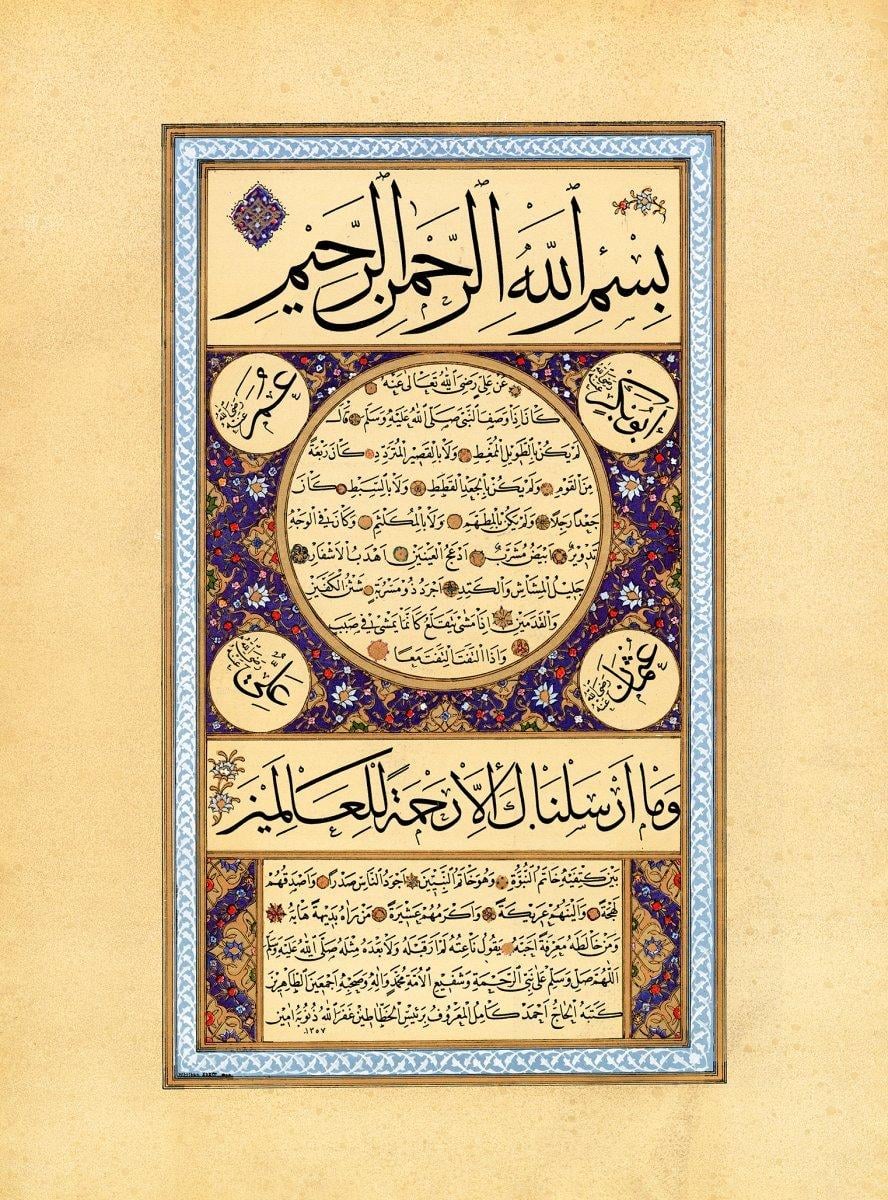 بِسْمِ اللهِ الرَّحْمٰنِ الرَّحِيمِ
أبو بكر رضي الله عنه
عُمَر رضي الله عنه
عَنْ عَلِيٍّ رَضِيَ اللهُ تَعَالَى عَنْهُ
كَانَ إِذَا وَصَفَ النَّبِيَّ صَلَّى اللهُ عَلَيْهِ وَسَلَّمَ قَالَ
لَمْ يَكُنْ بِالطَّوِيلِ الْمُمَّغِطِ وَلَا بِالْقَصِيرِ الْمُتَرَدِّدِ كَانَ رَبْعَةً
مِنَ الْقَوْمِ وَلَمْ يَكُنْ بِالْجَعْدِ الْقَطَطِ وَلَا بِالسَّبِطِ كَانَ
جَعْدًا رَجِلًا وَلَمْ يَكُنْ بِالْمُطَهَّمِ وَلَا بِالْمُكَلْثَمِ وَكَانَ فِي الْوَجْهِ
تَدْوِيرٌ اَبْيَضُ مُشْرَبٌ اَدْعَجُ الْعَيْنَيْنِ اَهْدَبُ الْاَشْفَارِ
جَلِيلُ الْمُشَاشِ وَالْكَتَدِ اَجْرَدُ ذُو مَسْرُبَةٍ شَثْنُ الْكَفَّيْنِ
وَالْقَدَمَيْنِ اِذَا مَشَى يَتَقَلَّعُ كَاَنَّمَا يَمْشِي فِي صَبَبٍ
وَاِذَا الْتَفَتَ الْتَفَتَ مَعًا
عُثْمَان رضي الله عنه
عَلِيّ رضي الله عنه
وَمَا اَرْسَلْنَاكَ اِلَّا رَحْمَةً لِلْعَالَمِينَ
بَيْنَ كَتِفَيْهِ خَاتَمُ النُّبُوَّةِ وَهُوَ خَاتَمُ النَّبِيِّينَ اَجْوَدُ النَّاسِ صَدْرًا وَاَصْدَقُهُمْ
لَهْجَةً وَاَلْيَنُهُمْ عَرِيكَةً وَاَكْرَمُهُمْ عَشِيرَةً مَنْ رَاٰهُ بَدِيهَةً هَابَهُ
وَمَنْ خَالَطَهُ مَعْرِفَةً اَحَبَّهُ يَقُولُ نَاعِتُهُ لَمْ اَرَ قَبْلَهُ وَلَا بَعْدَهُ مِثْلَهُ صَلَّى اللهُ عَلَيْهِ وَسَلَّمَ
اَللّٰهُمَّ صَلِّ وَسَلِّمْ عَلَى نَبِيِّ الرَّحْمَةِ وَشَفِيعِ الْاُمَّةِ مُحَمَّدٍ وَاٰلِهِ وَصَحْبِهِ اَجْمَعِينَ الطَّاهِرِينَ
كَتَبَهُ الْحَاجُّ اَحْمَدُ كَامِلُ الْمَعْرُوفُ بِرَئِيسِ الْخَطَّاطِينَ غَفَرَ اللهُ ذُنُوبَهُ اٰمِين
١٣٥٧